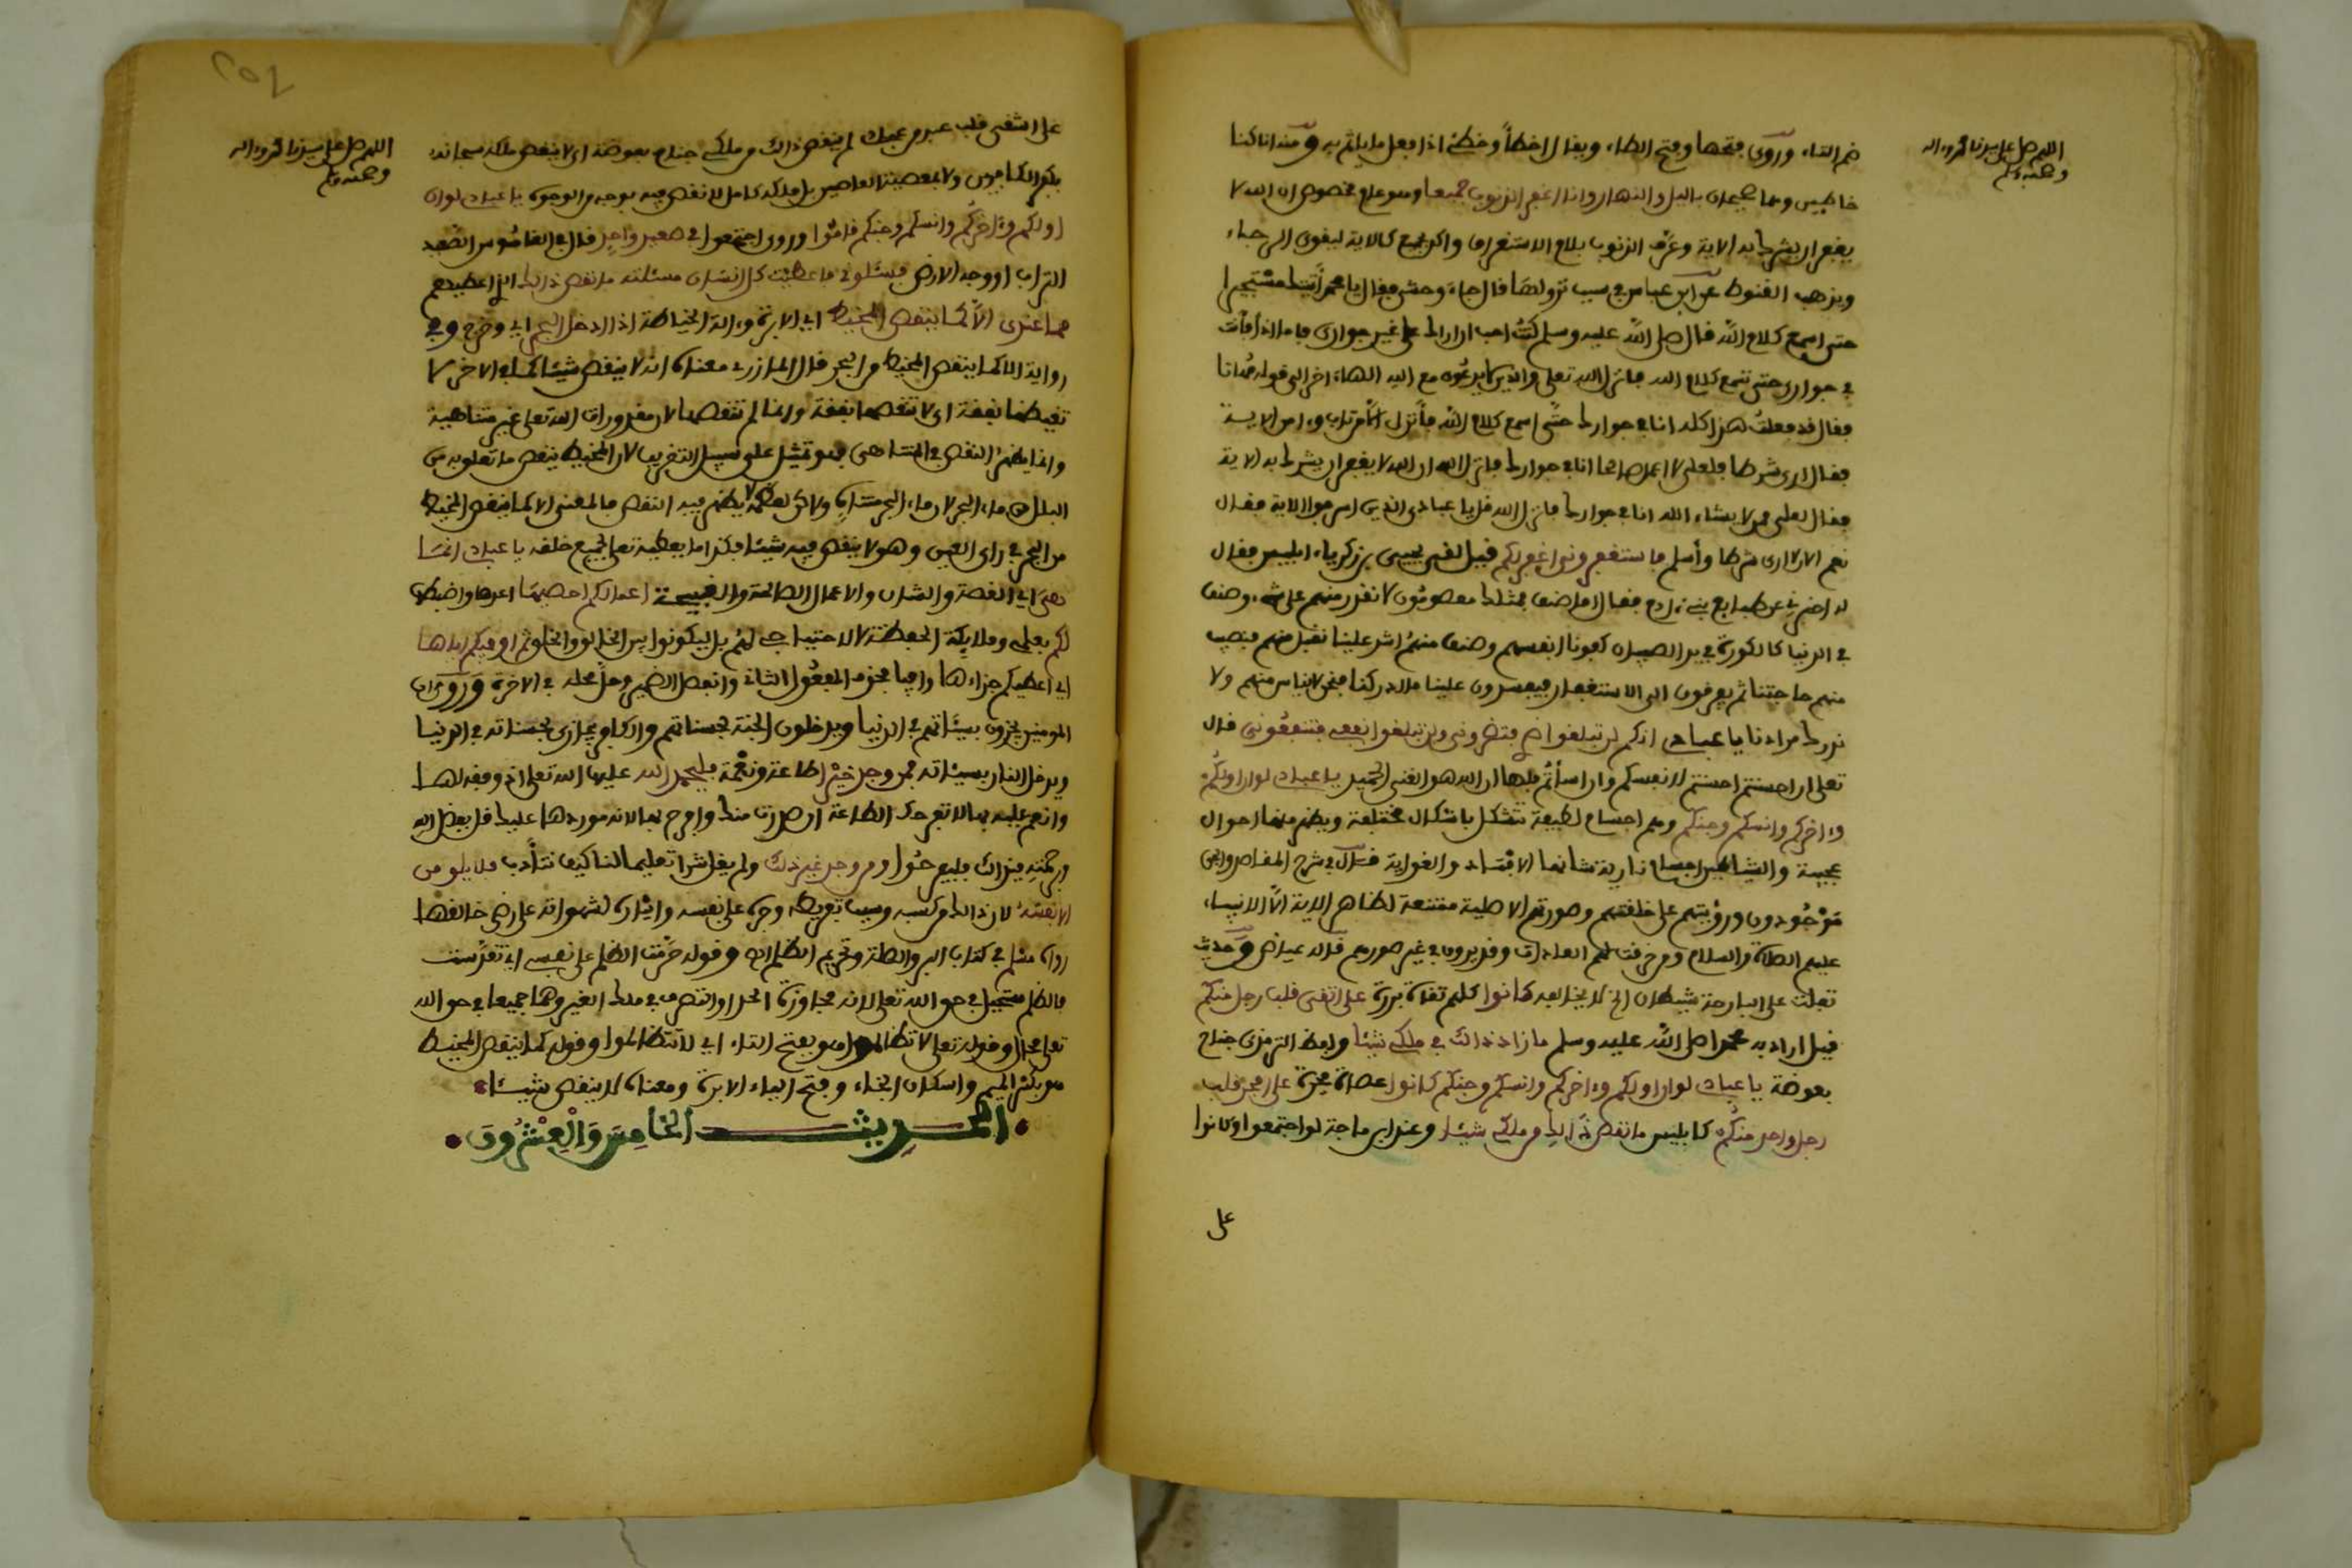 اللهم صل على سيدنا محمد وءاله
وصحبه وسلم
ضم التاء وروي بفتحها وفتح الطاء ويقال اخطأ وخطئ اذا فعل ما ياثم به ومنه انا كنا
خاطين وهما صحيحان بالليل والنهار وانا اغفر الذنوب جميعا وهو عام مخصوص ان الله لا
يغفر ان يشرك به الاية وعرف الذنوب بلام الاستغراق واكد بجميع كالاية ليقوى الرجاء
ويذهب القنوط عن ابن عباس في سبب نزولها قال جاء وحشي فقال يا محمد أتيتك مستجيرا
حتى اسمع كلام الله فقال صلى الله عليه وسلم كنت احب ان اراك على غير جواري فاما اذ أتيت
في جواري حتى تسمع كلام الله فانزل الله تعلى والذين لا يدعون مع الله الها اخر الى قوله مهانا
فقال قد فعلت هذا كله انا في جوارك حتى اسمع كلام الله فأنزل الا من تاب وءامن الاية
فقال ارى شرطا فلعلي لا اعمل صالحا انا في جوارك فانزل الله ان الله لا يغفر ان يشرك به الاية
فقال لعلي ممن لا يشاء الله انا في جوارك فانزل الله قل يا عبادي الذين اسرفوا الاية فقال
نعم الان لا ارى شرطا وأسلم فاستغفروني اغفر لكم قيل لقي يحيى بن زكرياء ابليس فقال
له اخبرني عن طبايع بني ءادم فقال اما صنف فمثلك معصومون لا نقدر منهم على شيء وصنف
في الدنيا كالكورة في يد الصبيان كفونا انفسهم وصنف منهم اشد علينا نقبل منهم فنصيب
منهم حاجتنا ثم يفرقون الى الاستغفار فيفسدون علينا ما ادركنا فنحن لا نياس منهم ولا
ندرك مرادنا يا عبادي انكم لن تبلغوا ضري فتضروني ولن تبلغوا نفعي فتنفعوني قال
تعلى ان احسنتم احسنتم لانفسكم وان اسأتم فلها ان الله هو الغني الحميد يا عبادي لو ان اولكم
وءاخركم وانسكم وجنكم وهم اجسام لطيفة تتشكل باشكال مختلفة ويظهر منها احوال
عجيبة والشياطين اجسام نارية شانها الافساد والغواية قال في شرح المقاصد والجن
موجودون ورؤيتهم على خلقتهم وصورتهم الاصلية ممتنعة لظاهر الاية الا الانبياء
عليهم الصلاة والسلام ومن خرقت لهم العادات وقد يرون في غير صورهم قاله عياض وحديث
تفلت علي البارحة شيطان الخ لا يخالفه كانوا كلهم تقاة بررة على اتقى قلب رجل منكم
قيل اراد به محمدا صلى الله عليه وسلم ما زاد ذالك في ملكي شيئا ولفظ الترمذي جناح
بعوضة يا عبادي لو ان اولكم وءاخركم وانسكم وجنكم كانوا عصاة فجرة على افجر قلب
رجل واحد منكم كابليس ما نقص ذالك من ملكي شيئا وعند ابن ماجة لو اجتمعوا وكانوا
على
اللهم صل على سيدنا محمد وءاله
وصحبه وسلم
على اشقى قلب عبد من عبادي لم ينقص ذالك من ملكي جناح بعوضة اي لا ينقص ملكه سبحانه
بكفر الكافرين ولا بمعصية العاصين بل ملكه كامل لا نقص فيه بوجه من الوجوه يا عبادي لو ان
اولكم وءاخركم وانسكم وجنكم قاموا وروي اجتمعوا في صعيد واحد قال في القاموس الصعيد
التراب او وجه الارض فسئلوني فاعطيت كل انسان مسئلته ما نقص ذالك الذي اعطيتهم
مما عندي الا كما ينقص المخيط اي الابرة وءالة الخياطة اذا ادخل البحر اي وخرج وفي
رواية الا كما ينقص المخيط من البحر قال المازري معناه انه لا ينقص شيئا كما في الاخرى لا
تغيضها نفقة اي لا تنقصها نفقة وانما لم تنقصها لان مقدورات الله تعلى غير متناهية
وانما يظهر النقص في المتناهي فهو تمثيل على سبيل التقريب لان المخيط ينقص ما تعلق به من
البلل من ماء البحر لان ماء البحر متناه ولاكن لعظمه لا يظهر فيه النقص فالمعنى الا كما ينقص المخيط
من البحر في راي العين وهو لا ينقص فيه شيئا فكذا ما يعطيه تعلى لجميع خلقه يا عبادي انما
هي اي القصة والشان والاعمال الصالحة والقبيحة اعمالكم احصيها اعدها واضبطها
لكم بعلمي وملايكتي الحفظة لا لاحتياجي لهم بل ليكونوا بين الخالق والخلق ثم اوفيكم اياها
اي اعطيكم جزاءها وافيا فحذف المفعول الثاني وانفصل الضمير وحل محله في الاخرة وروي ان
المومنين يجزون بسيئاتهم في الدنيا ويدخلون الجنة بحسناتهم والكافر يجازى بحسناته في الدنيا
ويدخل النار بسيئاته فمن وجد خيرا طاعة ونعمة فليحمد الله عليها الله تعلى اذ وفقه لها
وانعم عليه بها لا تفرحك الطاعة ان صدرت منك وافرح بها لانه موردها عليك قل بفضل الله
وبرحمته فبذالك فليفرحوا ومن وجد غير ذلك ولم يقل شرا تعليما لنا كيف نتأدب فلا يلومن
الا نفسه لان ذالك من كسبه وسبب تفريطه وجرى على نفسه وايثاره لشهواته على رضى خالقها
رواه مسلم في كتاب البر والصلة وتحريم الظلم الخ وقوله حرمت الظلم على نفسي اي تقدست
فالظلم مستحيل في حق الله تعلى لانه مجاوزة الحد او التصرف في ملك الغير وهما جميعا في حق الله
تعلى محال وقوله تعلى لا تظالموا هو بفتح التاء اي لا تتظالموا وقوله كما ينقص المخيط
هو بكسر الميم واسكان الخاء وفتح الياء الابرة ومعناه لا ينقص شيئا
الحديث الخامس والعشرون